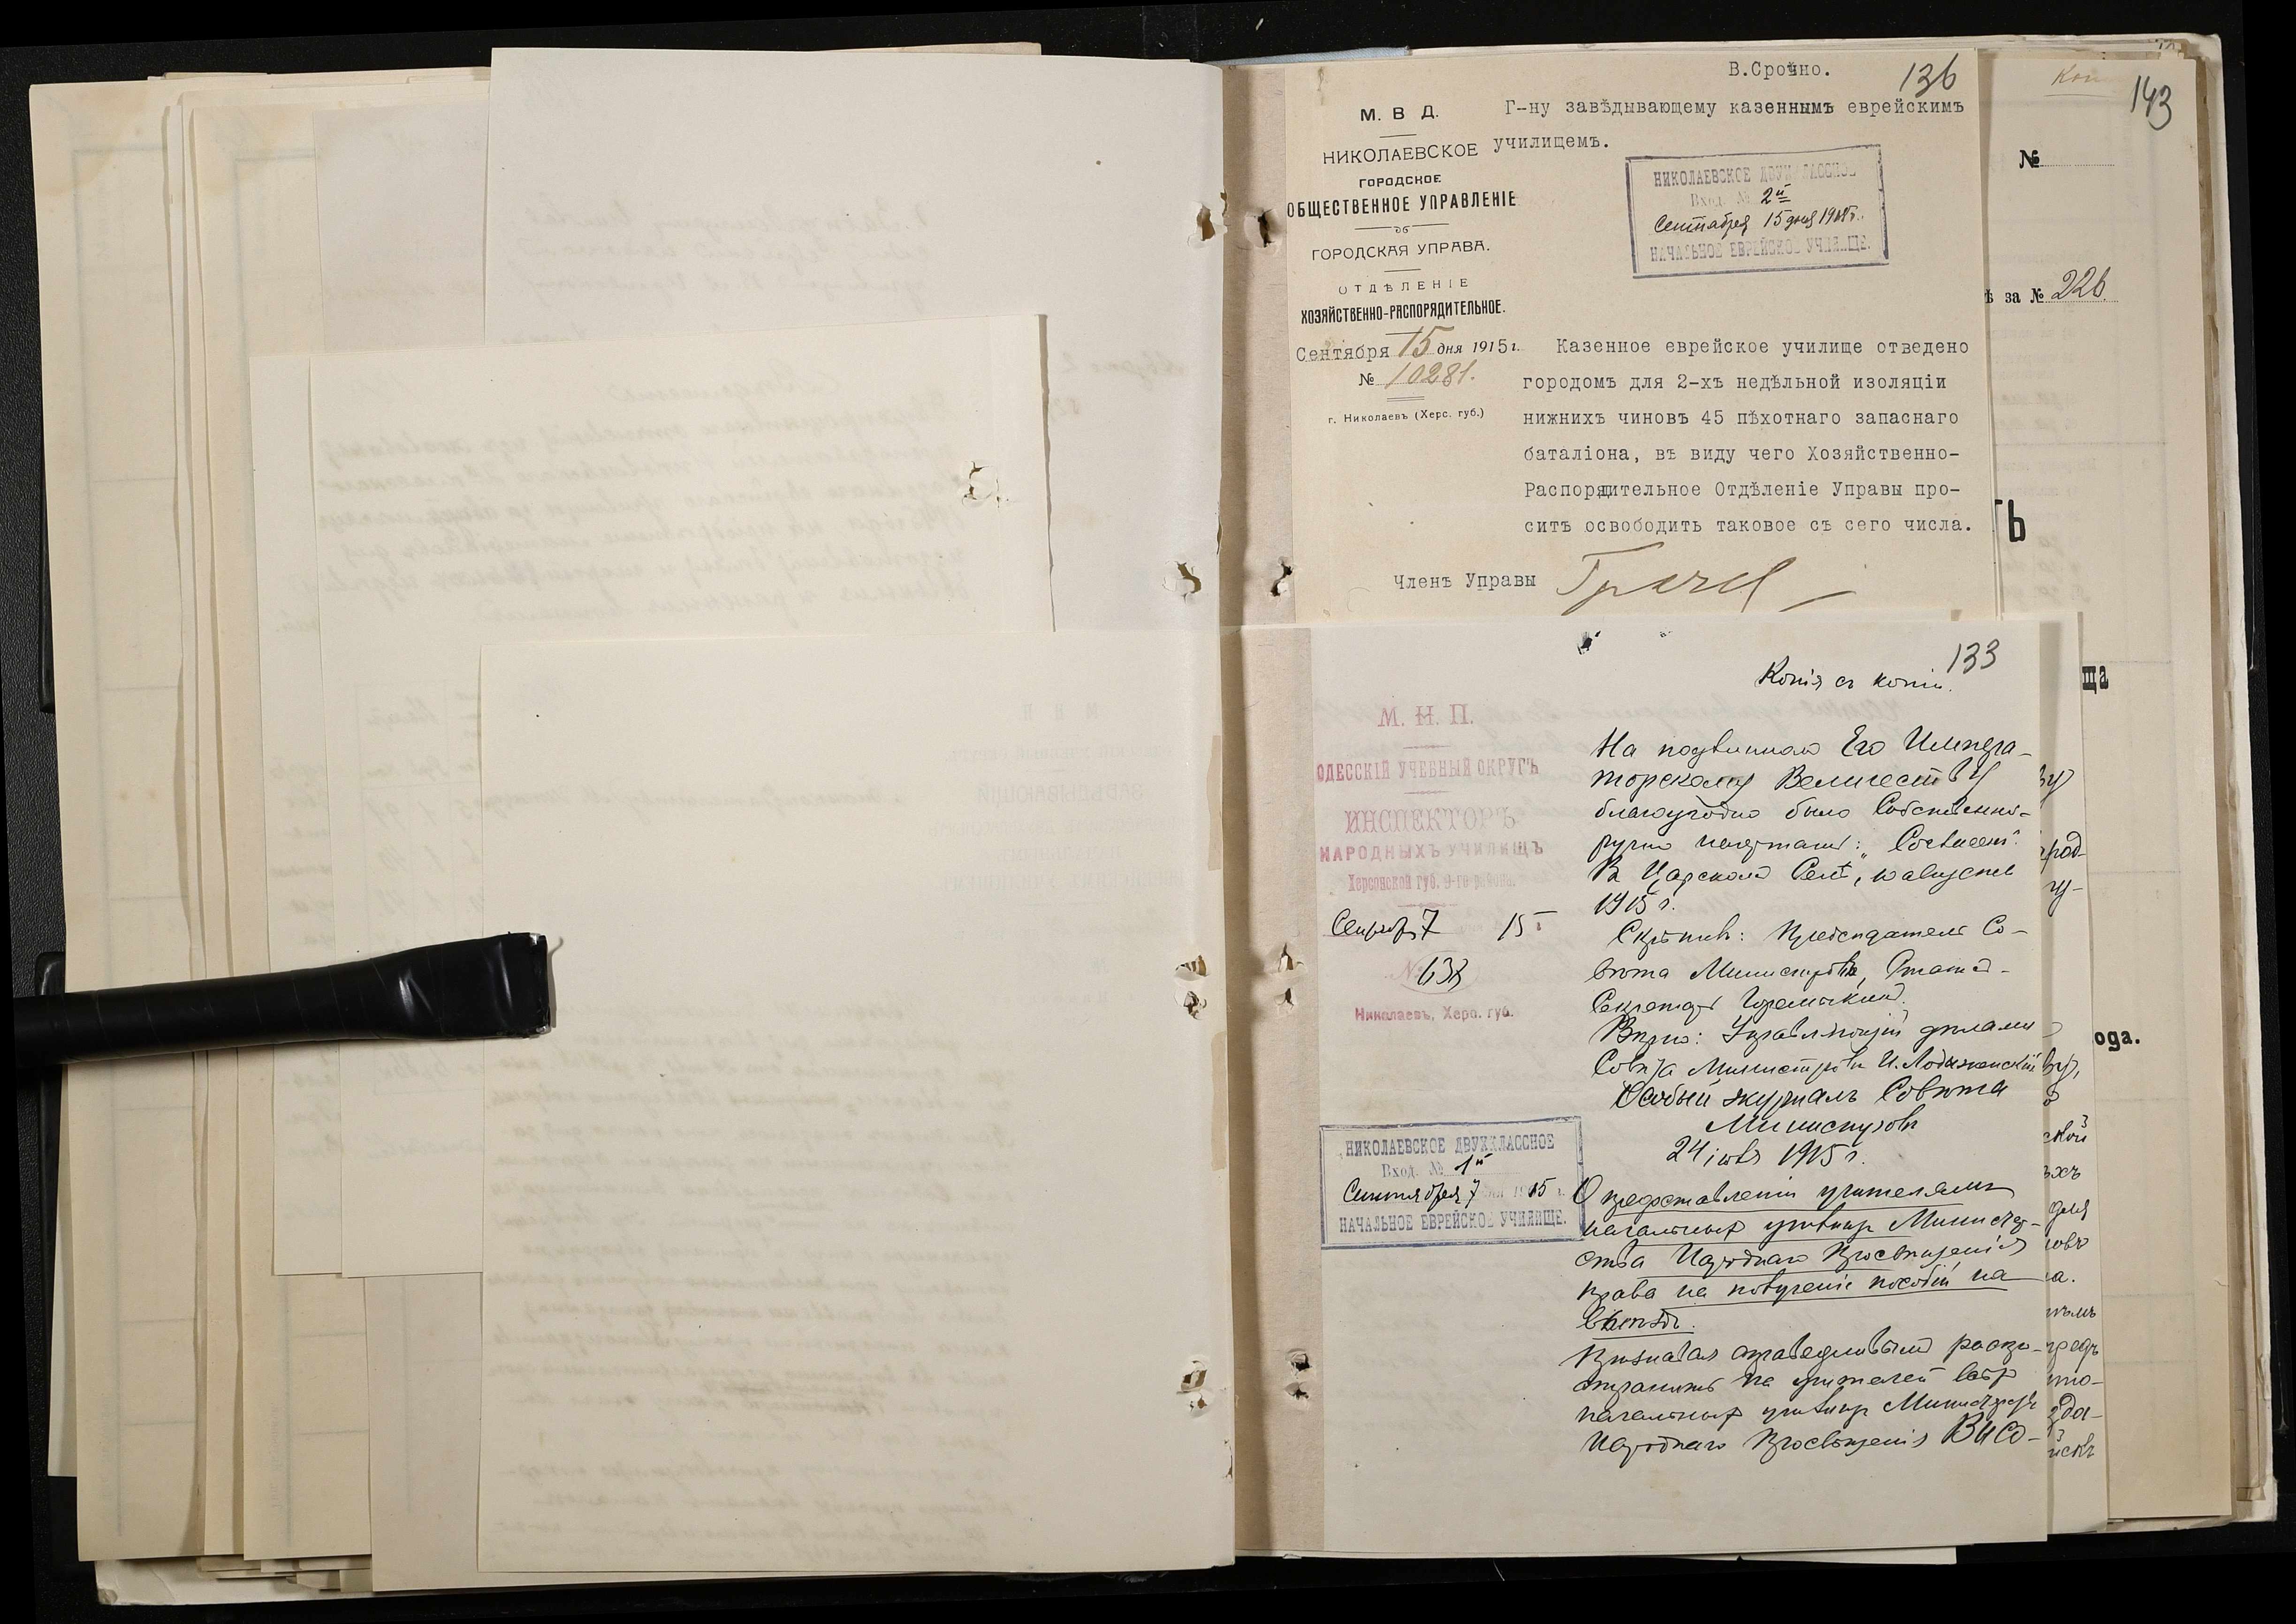 В.Срочно.
136
М. В Д.
НИКОЛАЕВСКОЕ
ГОРОДСКОЕ
ОБЩЕСТВЕННОЕ УПРАВЛЕНІЕ
ГОРОДСКАЯ УПРАВА.
ОТДѢЛЕНІЕ
ХОЗЯЙСТВЕННО-РАСПОРЯДИТЕЛЬНОЕ.
Сентября 15 дня 1915 г.
№ 10281.
г. Николаевъ (Херс. губ.)
Г-ну завѣдывающему казеннымъ еврейскимъ
училищемъ.
НИКОЛАЕВСКОЕ ДВУХКЛАССНОЕ
Вход. № 2й
Сентября 15 дня 1915 г.
НАЧАЛЬНОЕ ЕВРЕЙСКОЕ УЧИЛИЩЕ.
Казенное еврейское училище отведено
городомъ для 2-хъ недѣльной изоляціи
нижнихъ чиновъ 45 пѣхотнаго запаснаго
баталіона, въ виду чего Хозяйственно-
Распорядительное Отдѣленіе Управы про-
ситъ освободить таковое съ сего числа.
Членъ Управы
133
Копія съ копіи.
М. Н. П.
ОДЕССКІЙ УЧЕБНЫЙ ОКРУГЪ
ИНСПЕКТОРЪ
НАРОДНЫХЪ УЧИЛИЩЪ
Херсонской губ. 9-го района.
Сентябр 7 15 г
№ 638
Николаевъ, Херс. губ.
НИКОЛАЕВСКОЕ ДВУХКЛАССНОЕ
Вход. № 1й
Сентября 7 дня 1915 г.
НАЧАЛЬНОЕ ЕВРЕЙСКОЕ УЧИЛИЩЕ.
На подлинномъ Его Импера-
торскому Величеству
благоугодно было Собственно-
ручно начертать: "Согласенъ".
Въ Царскомъ Селѣ, 10 августа
1915 г.
Скрѣпилъ: Предсѣдатель Со-
вѣта Министровъ, Статсъ-
Секретарь Горемыкинъ.
Вѣрно: Управляющій дѣлами
Совѣта Министровъ И. Лодыженскій
Особый журналъ Совѣта
Министровъ
24 іюля 1915 г.
О предоставленіи учителямъ
начальныхъ училищъ Министер-
ства Народнаго Просвѣщенія
права на полученіе пособій на
выѣздъ.
Признавая справедливымъ распро-
странить на учителей всѣхъ
начальныхъ училищъ Министерства
Народнаго Просвѣщенія ВЫСО-
143
№
ѣ за № 226.
ТЬ
ща
ода.